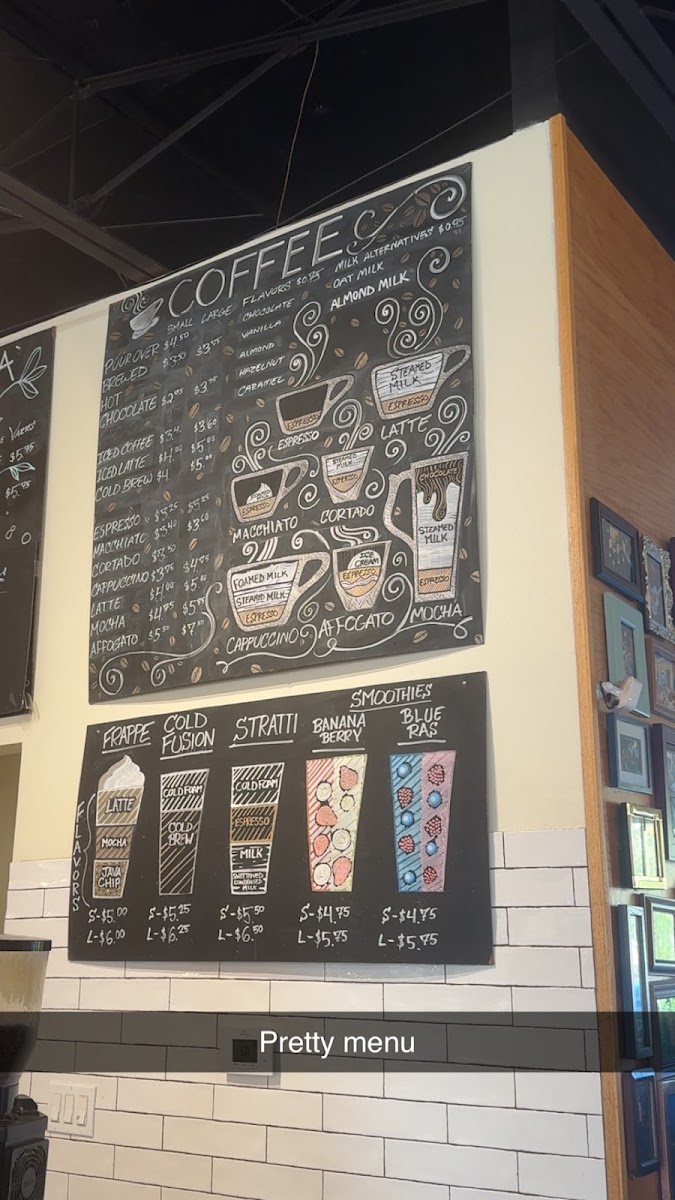 COFFEE
SMALL LARGE
POUR OVER $4.50
BREWED $3.50 $3.75
HOT
CHOCOLATE $2.95 $3.75
ICED COFFEE $3.60
ICED LATTE
COLD BREW $4
ESPRESSO $3.25
MACCHIATO $3.40 $3.60
CORTADO $3.50
CAPPUCCINO $3.75 $4.75
LATTE $4.00
MOCHA $4.75
AFFOGATO $5.50
FLAVORS $0.75
CHOCOLATE
VANILLA
ALMOND
HAZELNUT
CARAMEL
MILK ALTERNATIVES $0.95
OAT MILK
ALMOND MILK
ESPRESSO
ESPRESSO
STEAMED
MILK
ESPRESSO
LATTE
ESPRESSO
MACCHIATO
STEAMED
MILK
ESPRESSO
CORTADO
CHOCOLATE
STEAMED
MILK
ESPRESSO
MOCHA
FOAMED MILK
STEAMED MILK
ESPRESSO
CAPPUCCINO
ICE
CREAM
ESPRESSO
AFFOGATO
$5.95
$5.95
FLAVORS
FRAPPE
LATTE
MOCHA
JAVA
CHIP
S-$5.00
L-$6.00
COLD
FUSION
COLD FOAM
COLD
BREW
S-$5.25
L-$6.25
STRATTI
COLD FOAM
ESPRESSO
MILK
SWEETENED
CONDENSED
MILK
S-$5.50
L-$6.50
SMOOTHIES
BANANA
BERRY
S-$4.75
L-$5.75
BLUE
RAS
S-$4.75
L-$5.75
Pretty menu